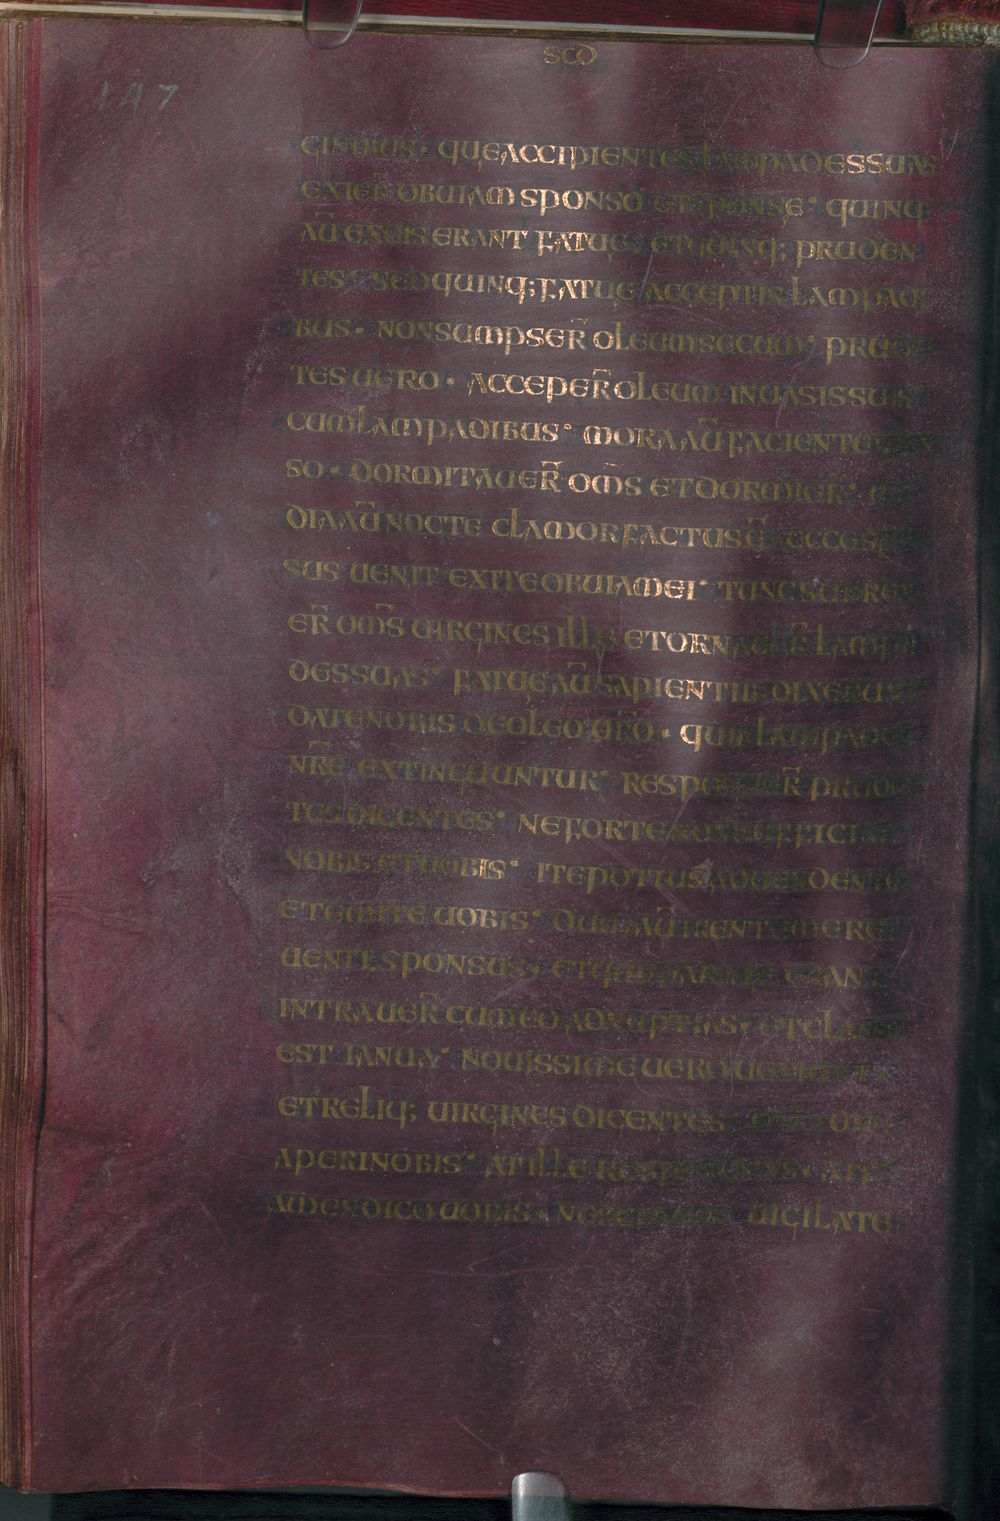 SCD
147
GINIBUS· QUE ACCIPIENTES LAMPADES SUAS
EXIER̄ OBUIAM SPONSO ET SPONSE· QUINQ;
AŪ EX EIS ERANT FATUE· ET QUINQ; PRUDEN
TES· SED QUINQ; FATUE ACCEPTIS LAMPADI
BUS· NON SUMPSER̄ OLEUM SECUM· PRUDEN
TES UERO· ACCEPER̄ OLEUM IN UASIS SUIS
CUM LAMPADIBUS· MORA AŪ FACIENTE
SO· DORMITAUER̄ OM̄S ET DORMIER̄·
DIA AŪ NOCTE CLAMOR FACTUS Ē· ECCE SPON
SUS UENIT EXITE OBUIAM EI· TUNC SURREX
ER̄ OM̄S UIRGINES ILLE ET ORNAUER̄ LAMPA
DES SUAS· FATUE AŪ SAPIENTIB· DIXERUNT
DATE NOBIS DE OLEO UR̄O· QUIA LAMPADES
NR̄E EXTINGUUNTUR· RESPONDER̄ PRUDEN
TES DICENTES· NE FORTE NON SUFFICIAT
NOBIS ET UOBIS· ITE POTIUS AD UENDENTES
ET EMITE UOBIS· DUM AŪ IRENT EMERE
UENIT SPONSUS· ET QUE PARATE ERANT
INTRAUER̄ CUM EO AD NUPTIAS· ET CLAUSA
EST IANUA· NOUISSIME UERO UENIUNT
ET RELIQ; UIRGINES DICENTES· DN̄E DN̄E
APERI NOBIS· AT ILLE RESPONDENS· AIT
AMEN DICO UOBIS· NESCIO UOS· UIGILATE